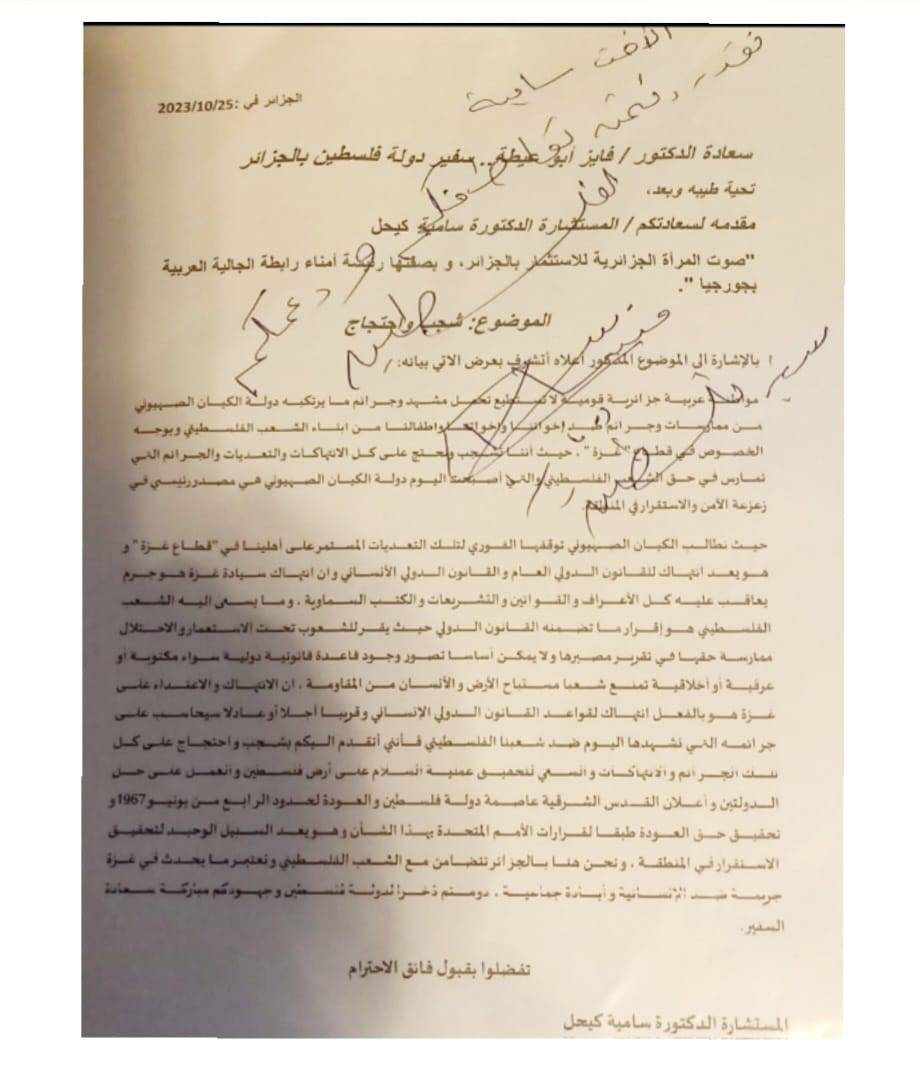 الأخت سامية
نقدر ونثمن
الجزائر في :2023/10/25
سعادة الدكتور / فايز أبو عيطة.. سفير دولة فلسطين بالجزائر
تحية طيبه وبعد،
مقدمه لسعادتكم / المستشارة الدكتورة سامية كيحل
"صوت المرأة الجزائرية للاستثمار بالجزائر، و بصفتها رئيسة أمناء رابطة الجالية العربية
بجورجيا ".
الموضوع: شجب واحتجاج
بالإشارة الى الموضوع المذكور اعلاه أتشرف بعرض الاتي بيانه:
مواطنة عربية جزائرية قومية لا تستطيع تحمل مشهد وجرائم ما يرتكبه دولة الكيان الصهيوني
من ممارسات وجرائم ضد إخواننا وأخواتنا واطفالنا من ابناء الشعب الفلسطيني وبوجه
الخصوص في قطاع "غزة" ، حيث أننا نشجب ونحتج على كل الانتهاكات والتعديات والجرائم التي
تمارس في حق الشعب الفلسطيني والتي أصبحت اليوم دولة الكيان الصهيوني هي مصدر رئيسي في
زعزعة الأمن والاستقرار في المنطقة.
حيث نطالب الكيان الصهيوني توقفها الفوري لتلك التعديات المستمر على أهلينا في "قطاع غزة" و
هو يعد انتهاك للقانون الدولي العام و القانون الدولي الأنساني وان انتهاك سيادة غزة هو جرم
يعاقب عليه كل الأعراف و القوانين و التشريعات و الكتب السماوية ، وما يسعى اليه الشعب
الفلسطيني هو إقرار ما تضمنه القانون الدولي حيث يقر للشعوب تحت الاستعمار والاحتلال
ممارسة حقها في تقرير مصيرها ولا يمكن أساسا تصور وجود قاعدة قانونية دولية سواء مكتوبة أو
عرفية أو أخلاقية تمنع شعبا مستباح الأرض و الأنسان من المقاومة ، ان الانتهاك و الاعتداء على
غزة هو بالفعل انتهاك لقواعد القانون الدولي الإنساني وقريبا أجلا أو عادلا سيحاسب على
جرائمه التي نشهدها اليوم ضد شعبنا الفلسطيني فأنني أتقدم اليكم بشجب و احتجاج على كل
تلك الجرائم و الانتهاكات و السعي لتحقيق عملية السلام على أرض فلسطين و العمل على حل
الدولتين و أعلان القدس الشرقية عاصمة دولة فلسطين و العودة لحدود الرابع من يونيو 1967 و
تحقيق حق العودة طبقا لقرارات الأمم المتحدة بهذا الشأن و هو يعد السبيل الوحيد لتحقيق
الاستقرار في المنطقة ، ونحن هنا بالجزائر نتضامن مع الشعب الفلسطيني و نعتبر ما يحدث في غزة
جريمة ضد الإنسانية و أبادة جماعية ، دومتم ذخرا لدولة فلسطين و جهودكم مباركة سعادة
السفير.
تفضلوا بقبول فائق الاحترام
المستشارة الدكتورة سامية كيحل